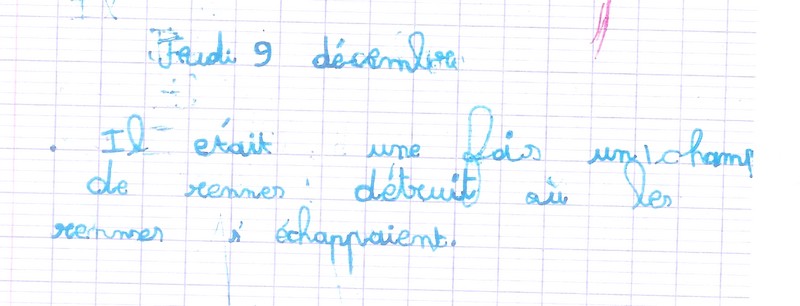 Jeudi 9 décembre
Il était une fois un champ
de rennes détruit où les
rennes s'échappaient.